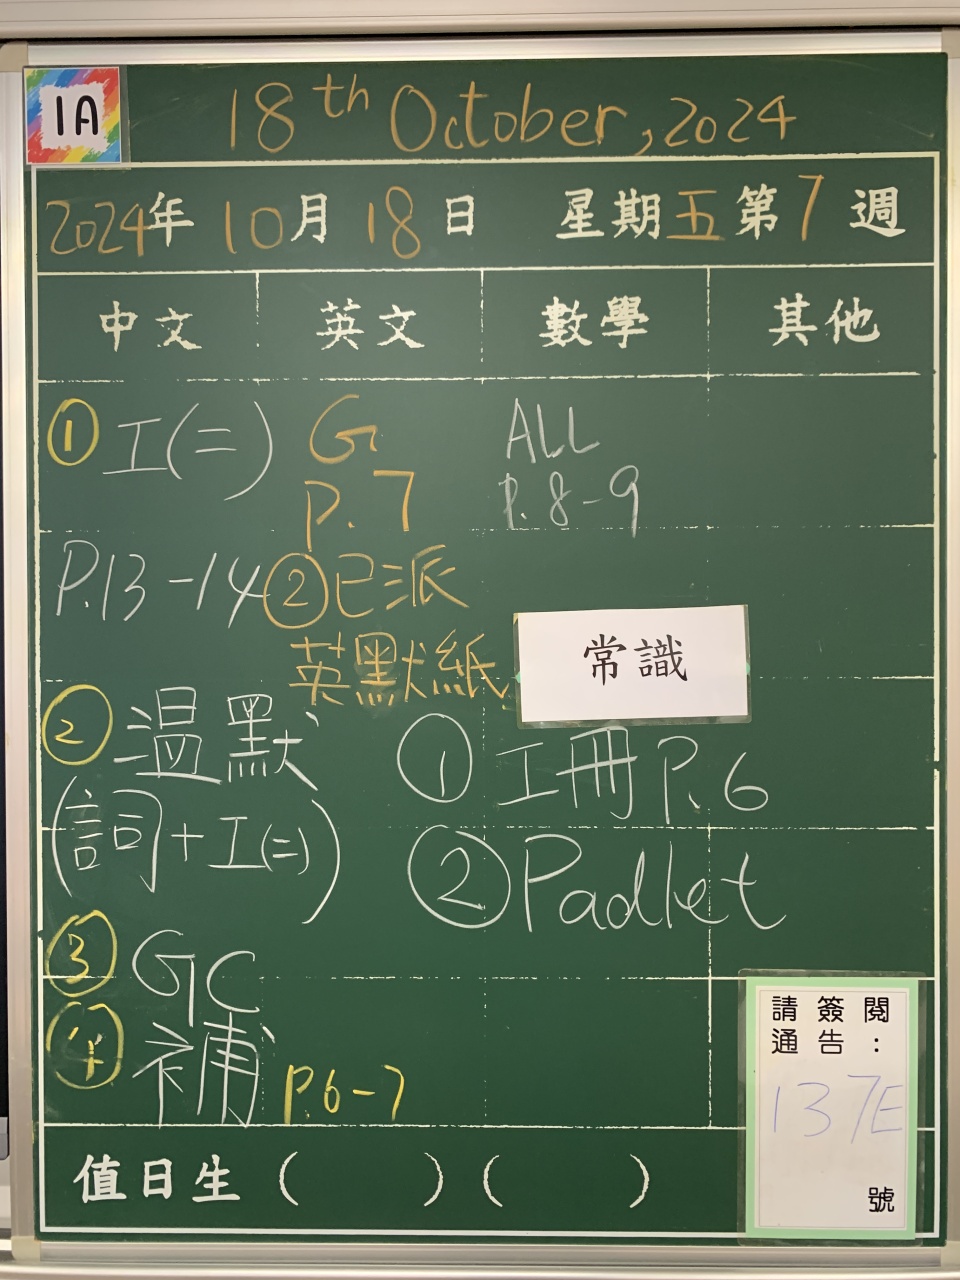 1A
18th October, 2024
2024年 10月 18日 星期五第7週
中文 英文 數學 其他
① 工(二) G ALL
P.7 P.8-9
P.13-14 ②已派
英默紙
常識
② 溫默 ① 工冊 P.6
(詞+工(二)) ② Padlet
③ GC
④ 補 P.6-7
請簽閱
通告:
137E
號
值日生 ( ) ( )